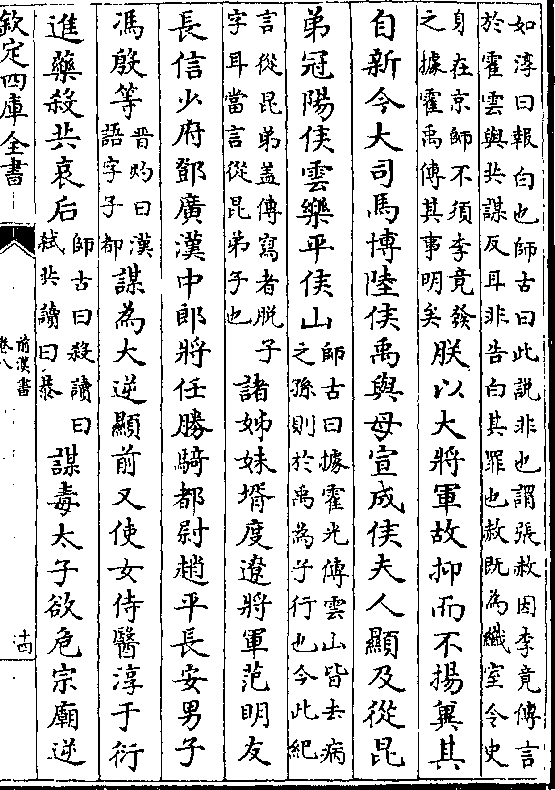 如淳曰報白也師古曰此説非也謂張赦因李竟傳言
於霍雲與共謀反耳非告白其罪也赦既為織室令史
身在京師不須李竟發
之據霍禹傳其事明矣
朕以大將軍故抑而不揚兾其
自新今大司馬博陸侯禹與母宣成侯夫人顯及從昆
弟冠陽侯雲樂平侯山
師古曰據霍光傳雲山皆去病
之孫則於禹為子行也今此紀
言從昆弟盖傳寫者脱子
字耳當言從昆弟子也
諸姊妹壻度遼將軍范明友
長信少府鄧廣漢中郎將任勝騎都尉趙平長安男子
馮殷等
晋灼曰漢
語字子都
謀為大逆顯前又使女侍醫淳于衍
進藥殺共哀后
師古曰殺讀曰
弑共讀曰恭
謀毒太子欲危宗廟逆
欽定四庫全書
前漢書
卷八
十四